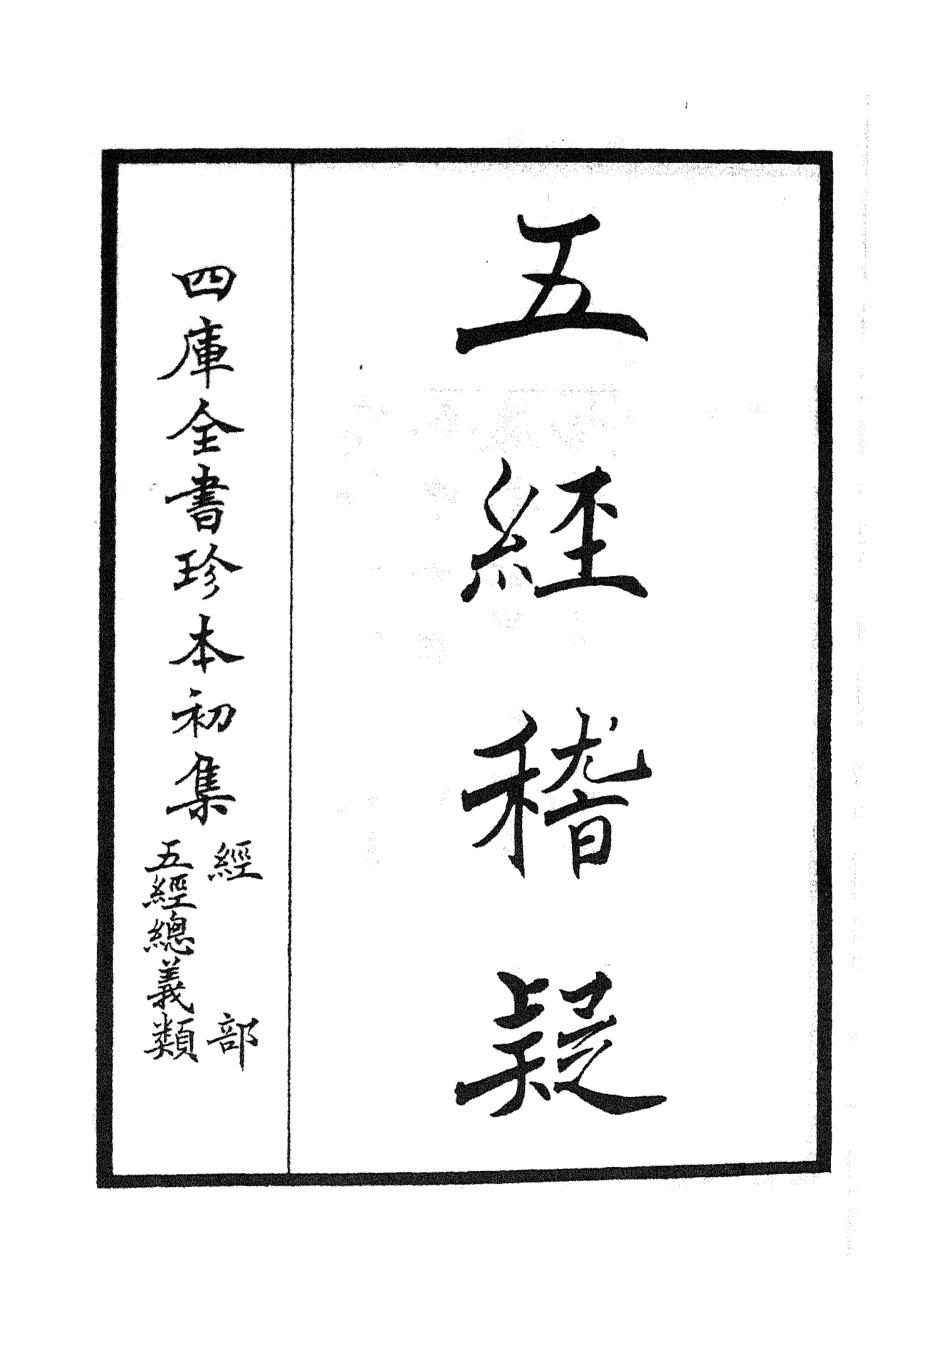 五經稽疑
四庫全書珍本初集
經部
五經總義類